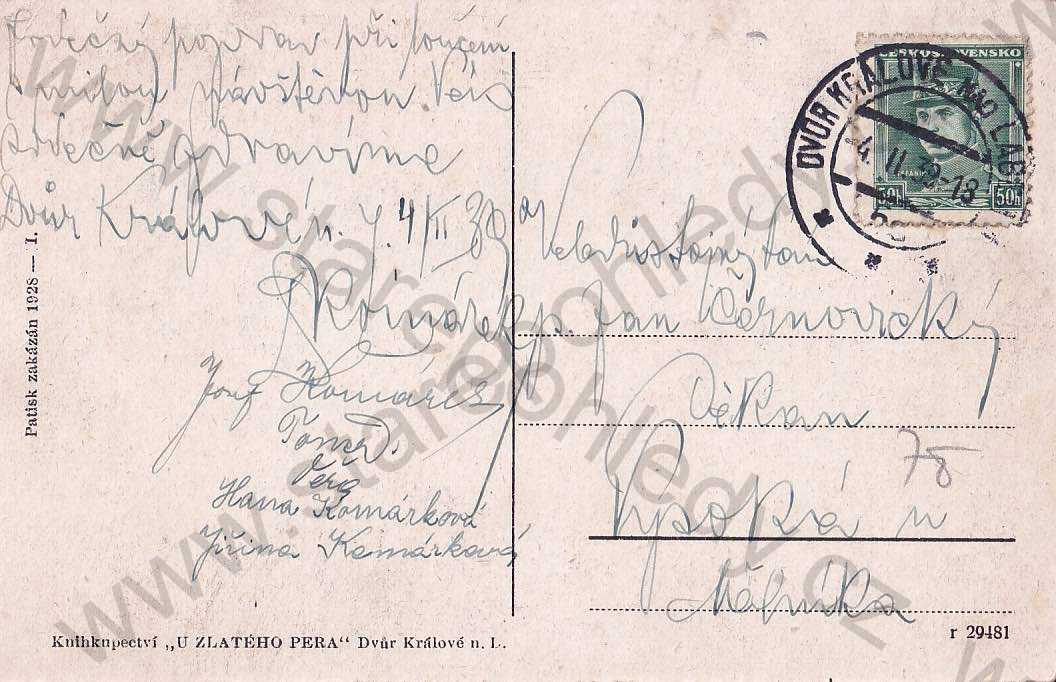 Srdečný pozdrav při loučení
s milou návštěvou. Vás
srdečně zdravíme
Dvůr Králové n. L. 4/II 39
Komárek
Josef Komárek
Věra
Hana Komárková
Jiřina Komárková
Patisk zakázán 1928 — I.
Knihkupectví „U ZLATÉHO PERA“ Dvůr Králové n. L.
ČESKOSLOVENSKO
50h 50h
DVŮR KRÁLOVÉ NAD LAB
4. II. 39-18
Veledůstojný pan
p. Jan Černovický
Děkan
78
Vysoká u
Mělníka
r 29481
www.starepohledy.cz